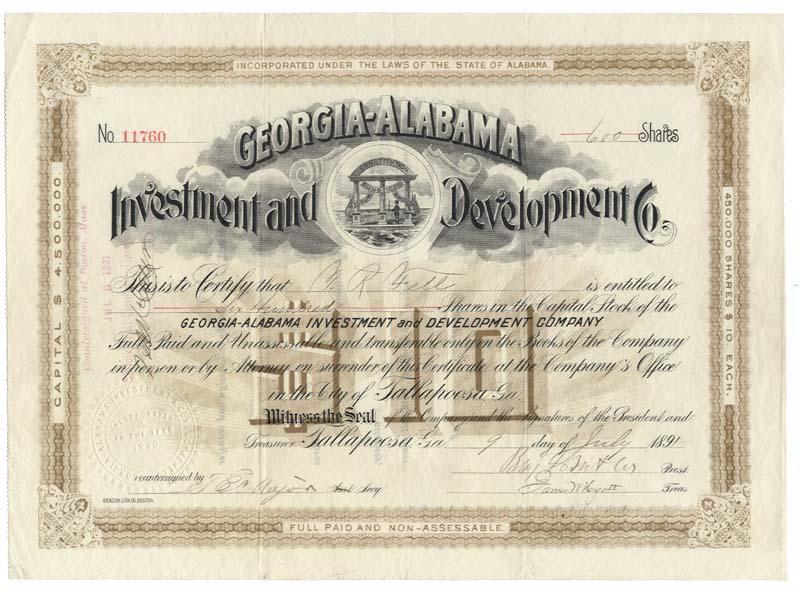 INCORPORATED UNDER THE LAWS OF THE STATE OF ALABAMA.
No 11760
600 Shares
GEORGIA-ALABAMA
Investment and Development Co.
CAPITAL $ 4,500,000.
450,000 SHARES $10. EACH.
Countersigned at Boston, Mass.
This is to Certify that is entitled to
Six Hundred Shares in the Capital Stock of the
GEORGIA-ALABAMA INVESTMENT and DEVELOPMENT COMPANY
Full Paid and Unassessable and transferable only on the Books of the Company
in person or by Attorney on surrender of this Certificate at the Company's Office
in the City of Tallapoosa Ga.
Witness the Seal of the Company and the signatures of the President and
Treasurer Tallapoosa Ga. 9 day of July 1891
Prest
countersigned by Secy
Treas
$10
BEACON LITH CO. BOSTON.
FULL PAID AND NON-ASSESSABLE.